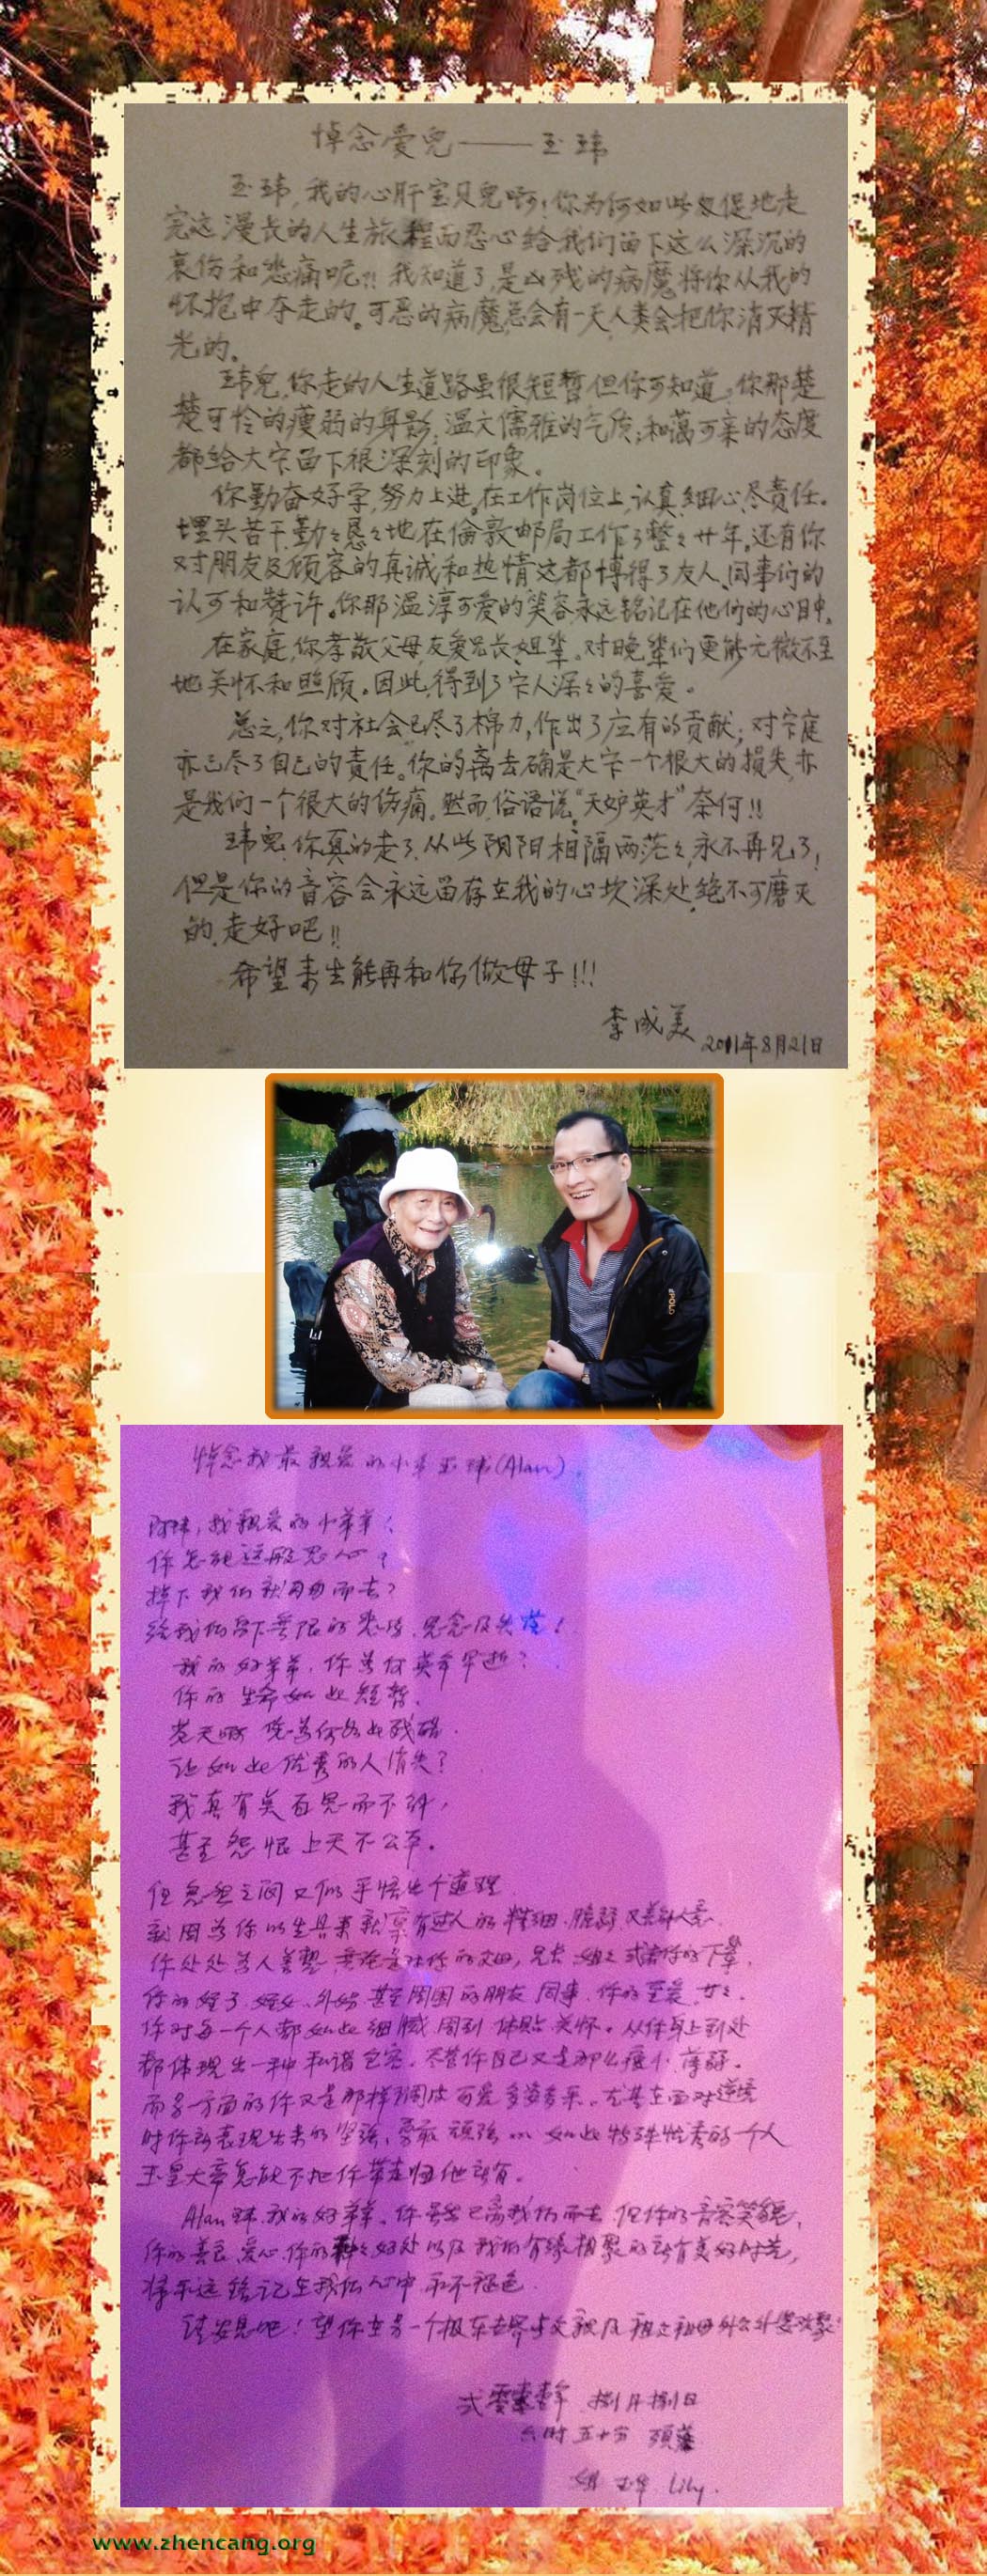 悼念爱兒——玉玮
玉玮,我的心肝宝贝兒啊!你为何如此仓促地走
完这漫长的人生旅程而忍心给我们留下这么深沉的
哀伤和悲痛呢?!我知道了,是凶残的病魔将你从我的
怀抱中夺走的。可恶的病魔总会有一天人类会把你消灭精
光的。
玮兒,你走的人生道路虽很短暂但你可知道,你那楚
楚可怜的瘦弱的身影;温文儒雅的气质;和蔼可亲的态度
都给大家留下很深刻的印象。
你勤奋好学,努力上进。在工作岗位上,认真,细心,尽责任。
埋头苦干,勤々恳々地在倫敦邮局工作了整々廿年。还有你
对朋友及顾客的真诚和热情这都博得了友人、同事们的
认可和赞许。你那温淳可爱的笑容永远铭记在他们的心目中。
在家庭,你孝敬父母,友爱兄长、姐辈。对晚辈们更能无微不至
地关怀和照顾。因此,得到了家人深々的喜爱。
总之,你对社会已尽了棉力,作出了应有的贡献;对家庭
亦已尽了自己的責任。你的离去确是大家一个很大的损失,亦
是我们一个很大的伤痛。然而,俗语说,“天妒英才”奈何!!
玮兒,你真的走了,从此阴阳相隔两茫々,永不再见了!
但是你的音容会永远留存在我的心坎深处,绝不可磨灭
的,走好吧!!
希望来生能再和你做母子!!!
李成美
2011年8月21日
POLO
悼念我最親爱的小弟玉玮(Alan)
阿玮,我親爱的小弟弟!
你怎能这般忍心?
掉下我们就匆匆而去?
给我们留下無限的悲痛、思念及失落!
我的好弟弟,你為何英年早逝?
你的生命如此短暂,
苍天啊 您為何如此残酷
让如此优秀的人消失?
我真有矣百思而不解,
甚至怨恨上天不公平。
但忽然之间又似乎悟出个道理
就因為你的生具来就禀有过人的精细、
你处处與人善
你的侄子、侄女、外甥,甚至周围的朋友 同事、你的至爱
你对每一个人都如此细腻 周到 体贴 关怀。从你身上到处
都体现出一种和谐包容。尽管你自己又是那么瘦小 薄弱。
而另一方面的你又是那样调皮可爱多姿多采。尤其在面对逆境
时你所表现出来的坚强、勇敢 顽强…如此特殊优秀的个人
玉皇大帝怎能不把你带走归他所有。
Alan玮,我的好弟弟、你虽然已离我们而去,但你的音容笑貌,
你的善良、爱心、你的种々好处以及我们有缘相聚的所有美好时光,
将永远铭记在我们心中永不褪色
请安息吧!望你在另一个极乐世界与父親及祖父祖母外公外婆欢聚!
捌月捌日
时五十分
姐 玉华 Lily.
www.zhencang.org